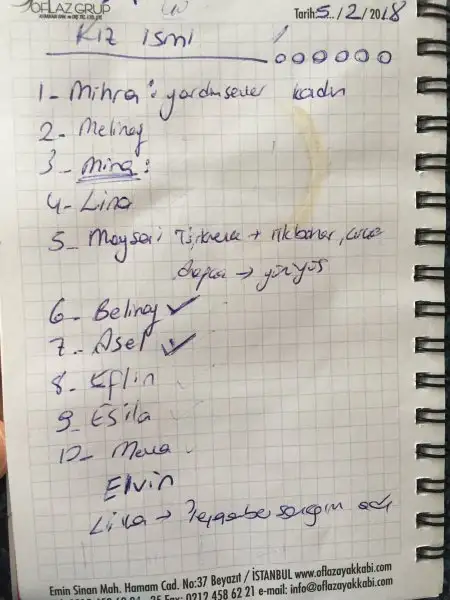 OFLAZ GRUP
Tarih: 5../2/2018
KIZ ismi
1- Mihra: yardımsever kadın
2- Melinay
3- Mina:
4- Lina
5- Maysa: Türkçede → ilkbahar,
→ yürüyüş
6- Belinay ✓
7- Asel ✓
8- Eflin
9- Esila
10- Merva
Elvin
Lina → sancağının adı
Emin Sinan Mah. Hamam Cad. No:37 Beyazıt / İSTANBUL www.oflazayakkabi.com
0212 458 62 21 e-mail: info@oflazayakkabi.com